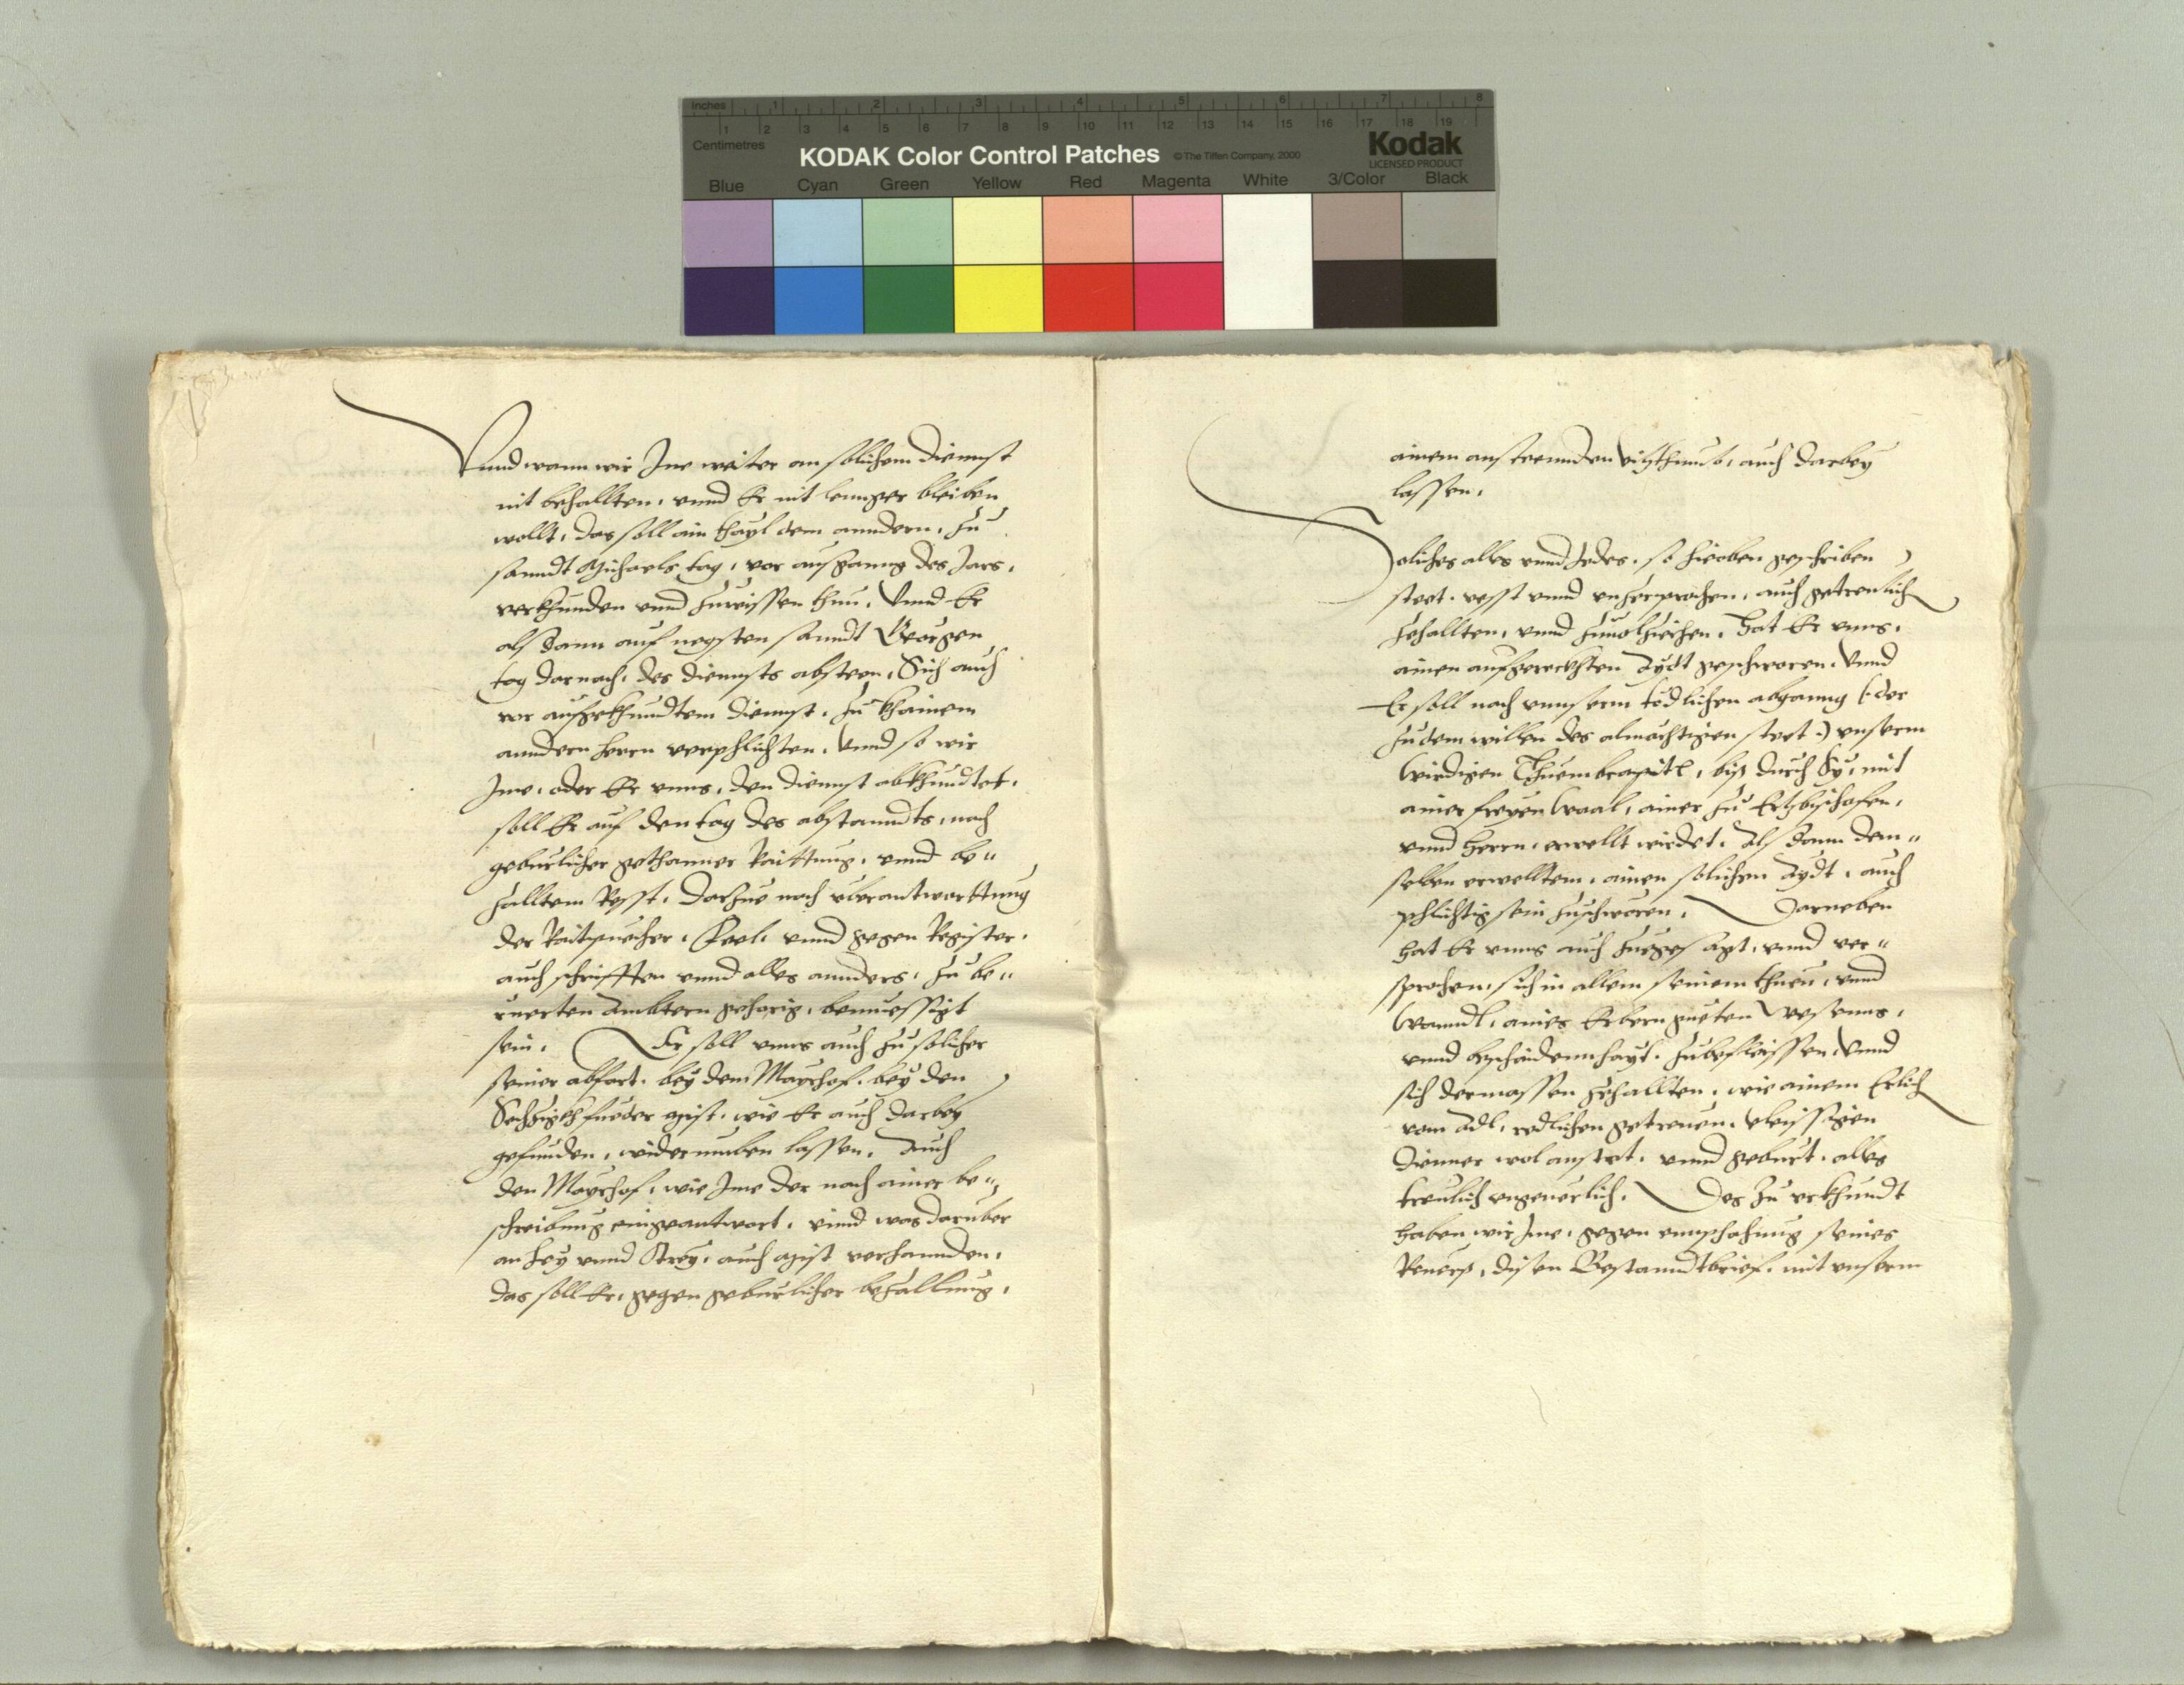 Inches 1 2 3 4 5 6 7 8
Centimetres 1 2 3 4 5 6 7 8 9 10 11 12 13 14 15 16 17 18 19
KODAK Color Control Patches © The Tiffen Company, 2000 Kodak
LICENSED PRODUCT
Blue Cyan Green Yellow Red Magenta White 3/Color Black
Vnnd wann wir Ime weiter an solichem diennst
nit behallten, vnnd Er nit lennger bleiben
wollt, das soll ain thayl dem anndern, zu
sanndt Michaels tag, vor ausganng des Jars,
verkhunden vnnd zuwissen thun, Vnnd Er
alsdann auf negsten sanndt Georgen
tag darnach, des diennsts absteen, Sich auch
vor aufgekhundtem diennst, zu khainem
anndern herrn verphlichten, Vnnd so wir
Ime, oder Er vnns, den diennst abkhundtet,
soll Er auf den tag des abstanndts, nach
geburlicher gethanner Raittung, vnnd be"
zalltem Resst, Darzue nach vberantworttung
der Raitpuecher, vnnd gegen Register,
auch schrifften vnnd alles annders, zu be"
ruerten Ambtern gehorig, bemuessigt
sein, Er soll vnns auch zu solicher
seiner abfart, bey dem Mayrhof, bey den
Sechzigkh fueder mist, wie Er auch darbey
gefunden, widerumben lassen, Auch
den Mayrhof, wie Ime der nach ainer be"
schreibung eingeantwort, vnnd was daruber
an hey vnnd Strey, auch mist verhannden,
das soll Er, gegen geburlicher bezallung,
ainem ansteennden Vitzthumb, auch darbey
lassen,
Soliches alles vnnd Jedes, so hieoben geschriben
steet, vesst vnnd vnzerprochen, auch getreulich
zehallten, vnnd zuuolziehen, Hat Er vnns,
ainen aufgereckhten Aydt geschworen, Vnnd
Er soll nach vnnserm tödlichen abganng (: der
zu dem willen des almechtigen steet :) vnserm
wirdigen Thuembcapitl, biß durch Sy, mit
ainer freyen Waal, ainer zu Ertzbischofen,
vnnd herrn, erwellt wirdet, Alsdann dem"
selben erwelltem, ainen solichen Aydt, auch
phlichtig sein zuschwören, Darneben
hat Er vnns auch zuegesagt, vnnd ver"
sprochen, sich in allem seinem thuen, vnnd
Wanndl, aines Erbern gueten Wesenns,
vnnd beschaidennhayt, zubefleissen, Vnnd
sich dermassen zehallten, wie ainem Erlich
vom Adl, redlichen getreuen, vleissigen
diennner wolanstet, vnnd geburt, alles
treulich vngeuerlich, Des zu vrkhundt
haben wir Ime, gegen emphahung seines
Reuerß, disen Bestanndtbrief, mit vnserm